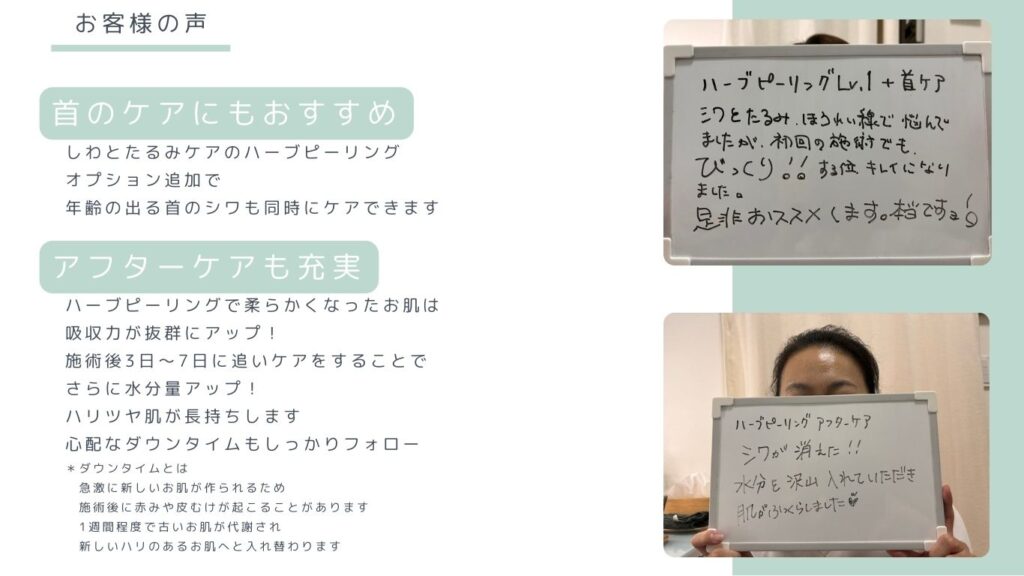 お客様の声
首のケアにもおすすめ
しわとたるみケアのハーブピーリング
オプション追加で
年齢の出る首のシワも同時にケアできます
アフターケアも充実
ハーブピーリングで柔らかくなったお肌は
吸収力が抜群にアップ！
施術後3日～7日に追いケアをすることで
さらに水分量アップ！
ハリツヤ肌が長持ちします
心配なダウンタイムもしっかりフォロー
＊ダウンタイムとは
急激に新しいお肌が作られるため
施術後に赤みや皮むけが起こることがあります
1週間程度で古いお肌が代謝され
新しいハリのあるお肌へと入れ替わります
ハーブピーリングLv.1+首ケア
シワとたるみ、ほうれい線で悩んで
ましたが、初回の施術でも、
びっくり!!する位キレイになり
ました。
是非おススメします。本当ですよ!
ハーブピーリング アフターケア
シワが消えた!!
水分を沢山入れていただき
肌がふっくらしました